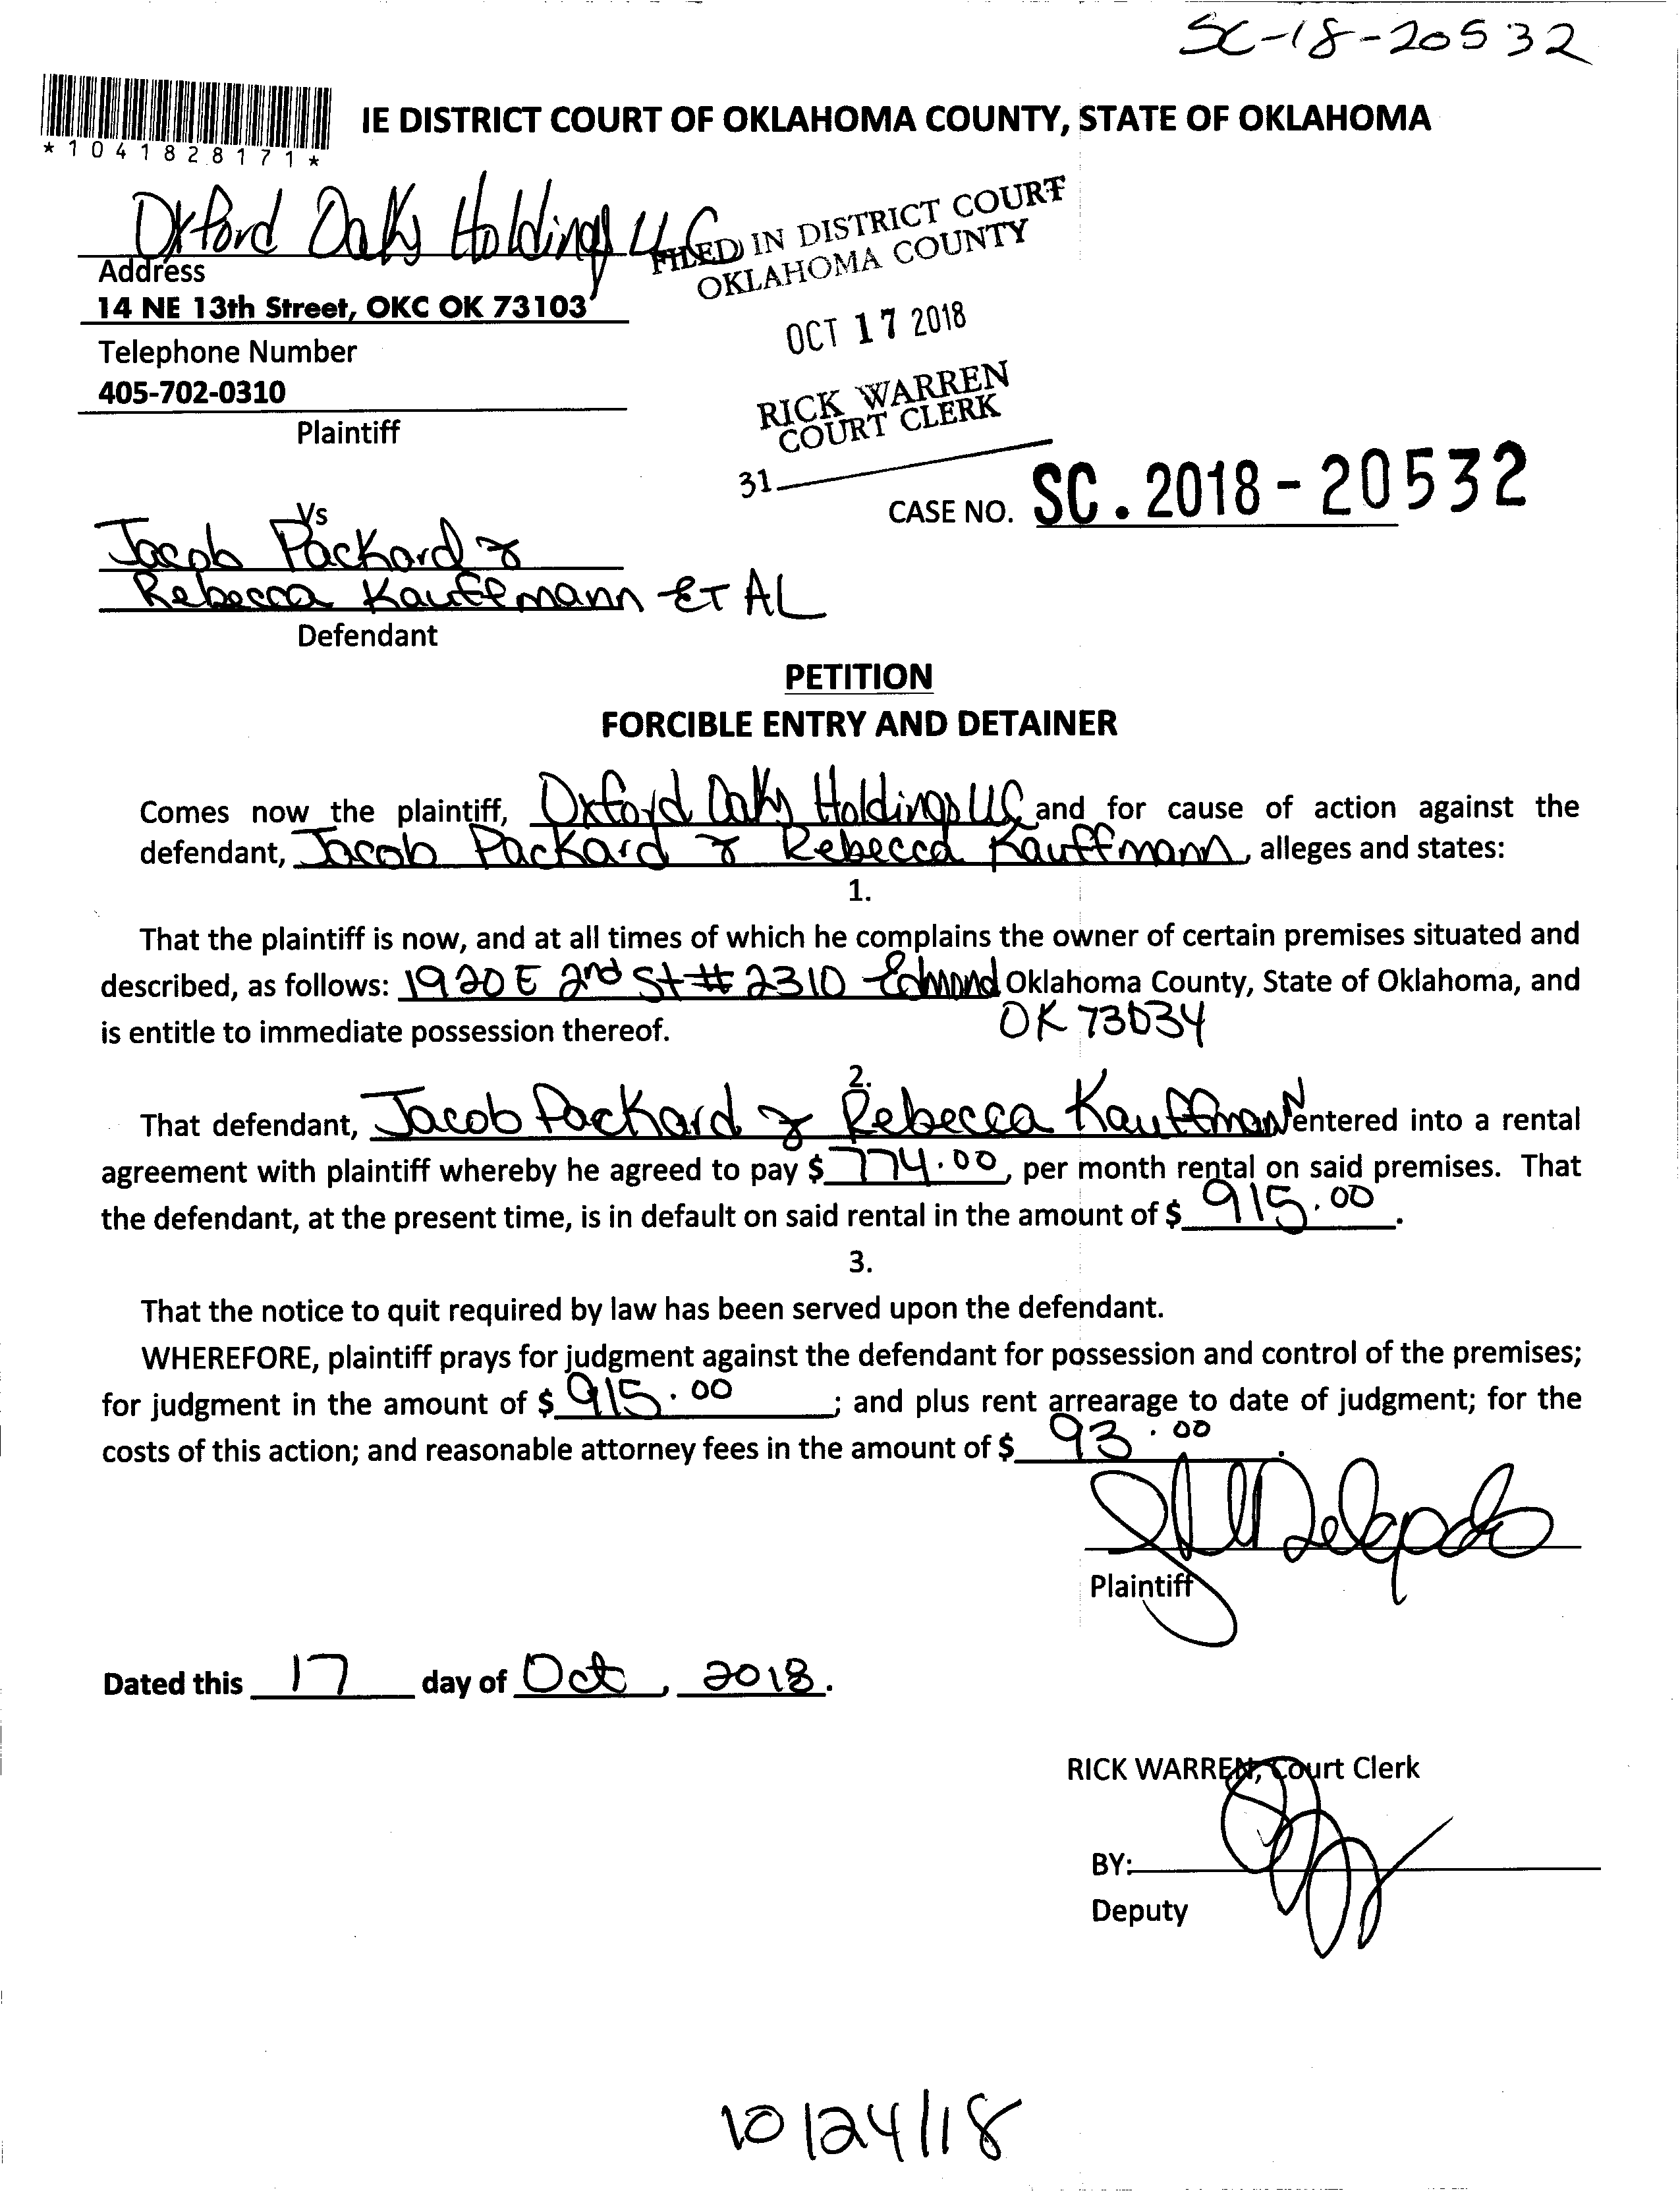 SC-18-20532
IE DISTRICT COURT OF OKLAHOMA COUNTY, STATE OF OKLAHOMA
*1041828171*
Oxford Oaks Holdings LLC
FILED IN DISTRICT COURT
OKLAHOMA COUNTY
Address
14 NE 13th Street, OKC OK 73103
OCT 17 2018
Telephone Number
405-702-0310
RICK WARREN
COURT CLERK
Plaintiff
31
CASE NO. SC.2018-20532
Vs
Jacob Packard &
Rebecca Kauffmann ET AL
Defendant
PETITION
FORCIBLE ENTRY AND DETAINER
Comes now the plaintiff, Oxford Oaks Holdings LLC and for cause of action against the
defendant, Jacob Packard & Rebecca Kauffmann, alleges and states:
1.
That the plaintiff is now, and at all times of which he complains the owner of certain premises situated and
described, as follows: 1920 E 2nd St # 2310 Edmond Oklahoma County, State of Oklahoma, and
OK 73034
is entitle to immediate possession thereof.
2.
That defendant, Jacob Packard & Rebecca Kauffman entered into a rental
agreement with plaintiff whereby he agreed to pay $ 774.00, per month rental on said premises. That
the defendant, at the present time, is in default on said rental in the amount of $ 915.00.
3.
That the notice to quit required by law has been served upon the defendant.
WHEREFORE, plaintiff prays for judgment against the defendant for possession and control of the premises;
for judgment in the amount of $ 915.00 ; and plus rent arrearage to date of judgment; for the
costs of this action; and reasonable attorney fees in the amount of $ 93.00.
Delgado
Plaintiff
Dated this 17 day of Oct, 2018.
RICK WARREN, Court Clerk
BY:
Deputy
10/24/18